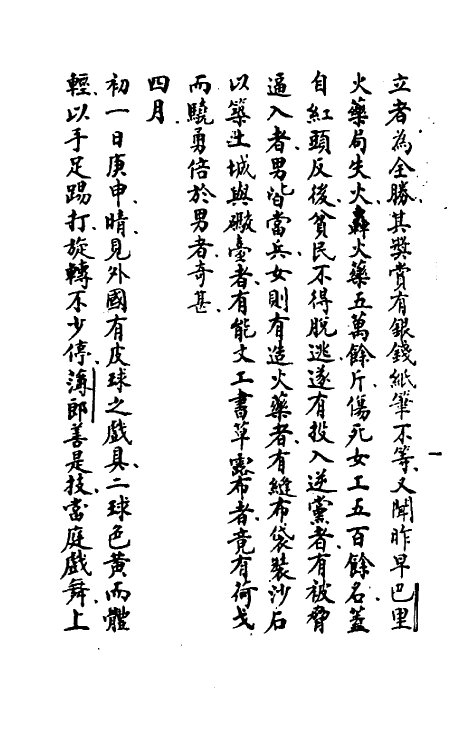 立者為全勝其獎賞有銀錢紙筆不等又聞昨早巴里
火藥局失火轟火藥五萬餘斤傷死女工五百餘名蓋
自紅頭反後貧民不得脫逃遂有投入逆黨者有被脅
逼入者男皆當兵女則有造火藥者有縫布袋裝沙石
以築土城與礮臺者有能文工書草露布者竟有荷戈
而驍勇倍於男者奇甚
四月
初一日庚申晴見外國有皮球之戲具二球色黃而體
輕以手足踢打旋轉不少停薄郎善是技當庭戲舞上